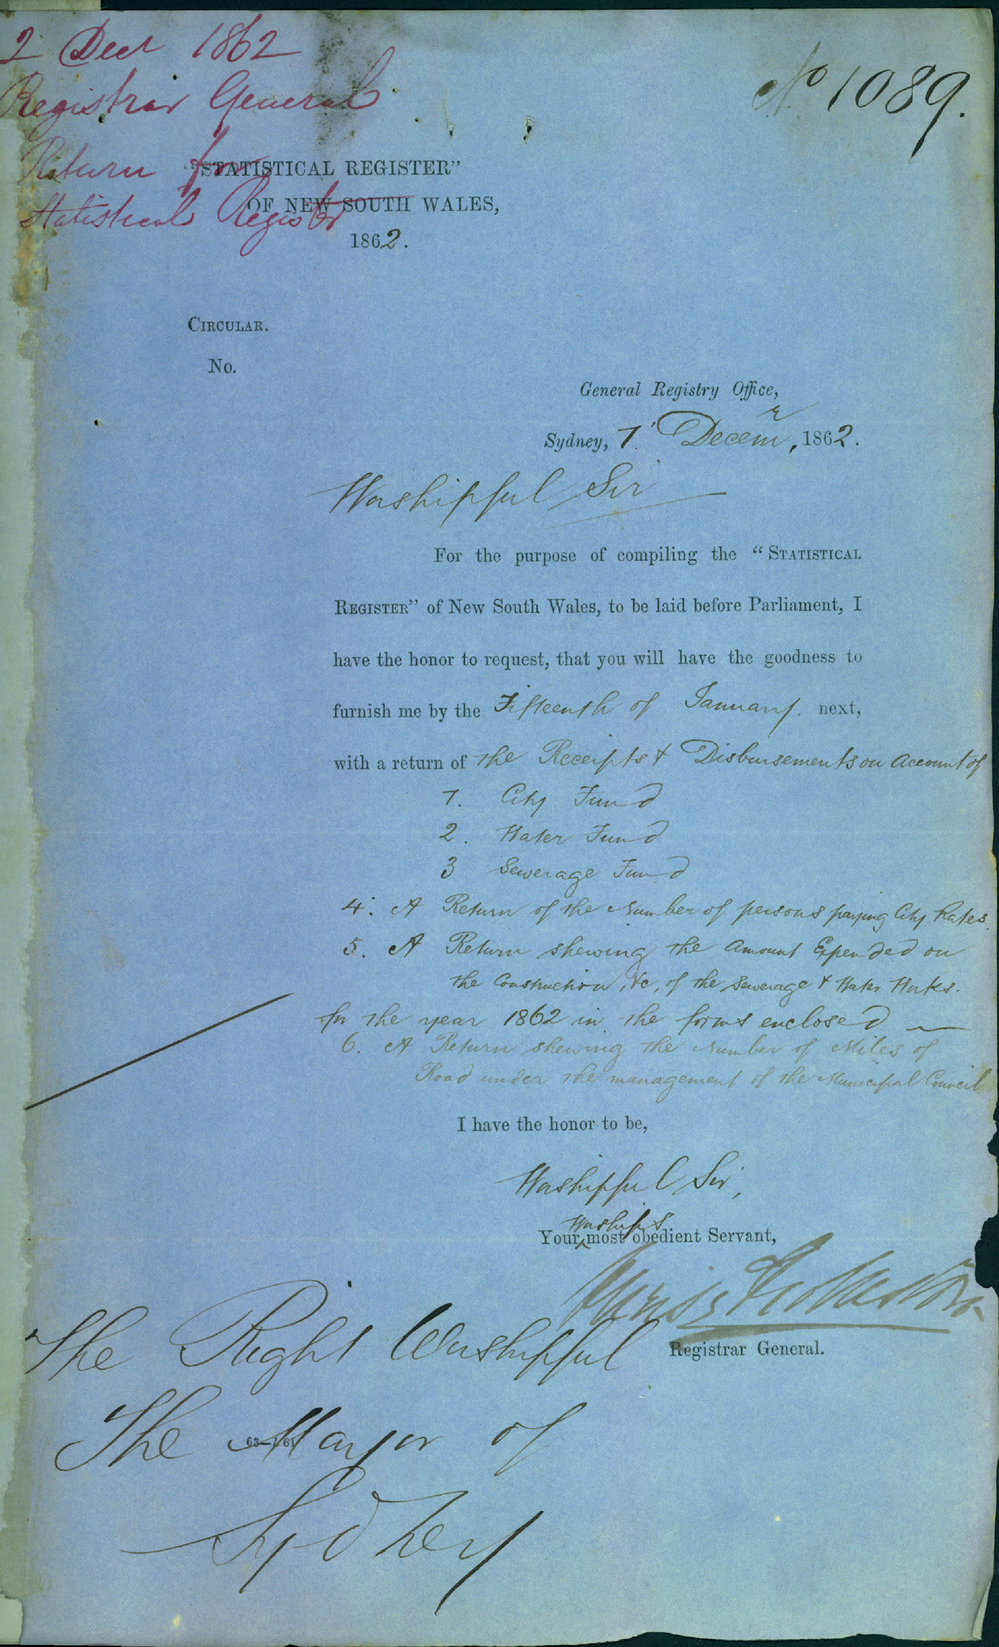 2 Decr 1862
Registrar General
Return for
Statistical Register
No 1089.
"STATISTICAL REGISTER"
OF NEW SOUTH WALES,
1862.
CIRCULAR.
No.
General Registry Office,
Sydney, 1 Decemr, 1862.
Worshipful Sir
For the purpose of compiling the "STATISTICAL
REGISTER" of New South Wales, to be laid before Parliament, I
have the honor to request, that you will have the goodness to
furnish me by the Fifteenth of January. next,
with a return of the Receipts & Disbursements on account of
1. City Fund
2. Water Fund
3 Sewerage Fund
4. A Return of the Number of persons paying City Rates.
5. A Return shewing the amount Expended on
the Construction, &c, of the Sewerage & Water Works.
for the year 1862 in the forms enclosed
6. A Return shewing the Number of Miles of
Road under the management of the Municipal Council
I have the honor to be,
Worshipful Sir,
Worships
Your most obedient Servant,
Registrar General.
The Right Worshipful
The Mayor of
Sydney